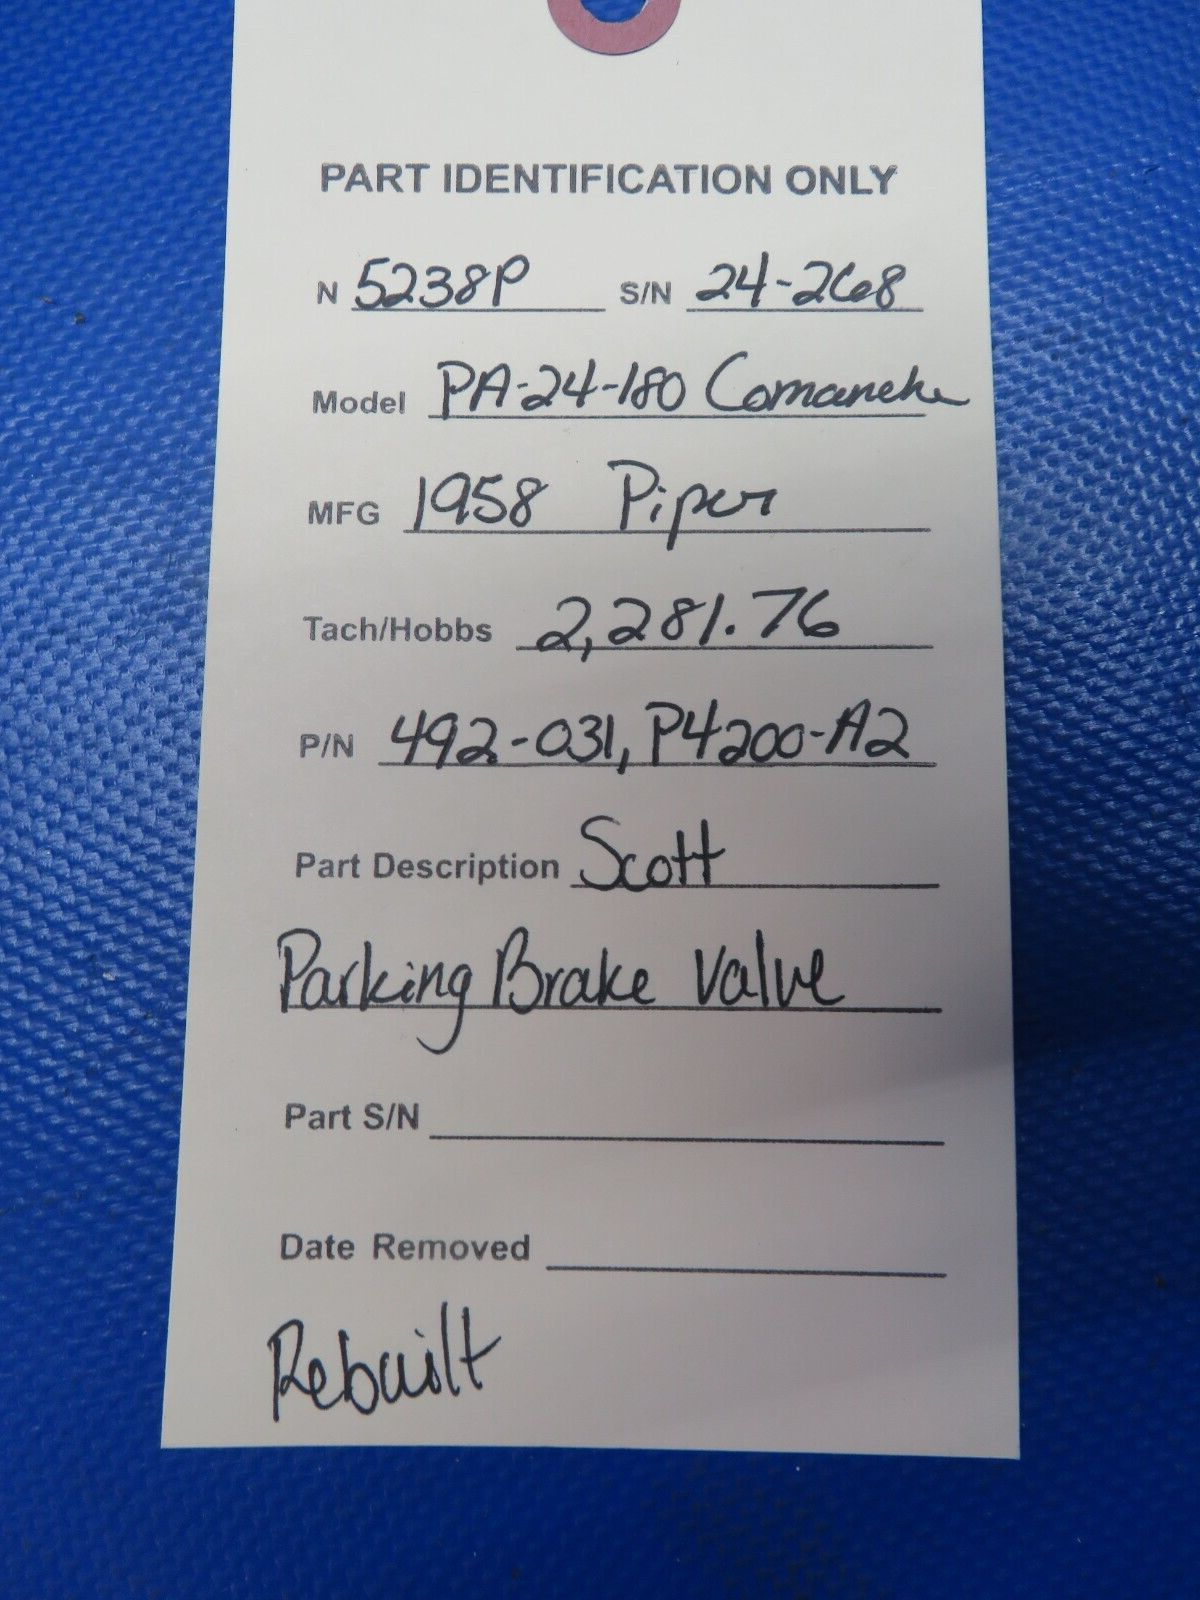 PART IDENTIFICATION ONLY
N 5238P S/N 24-268
Model PA-24-180 Comanche
MFG 1958 Piper
Tach/Hobbs 2,281.76
P/N 492-031, P4200-A2
Part Description Scott
Parking Brake Valve
Part S/N
Date Removed
Rebuilt